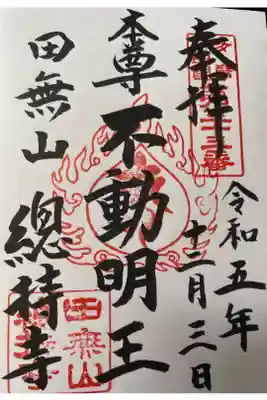 奉拝
令和五年
十二月三日
本尊 不動明王
田無山 總持寺
田無山